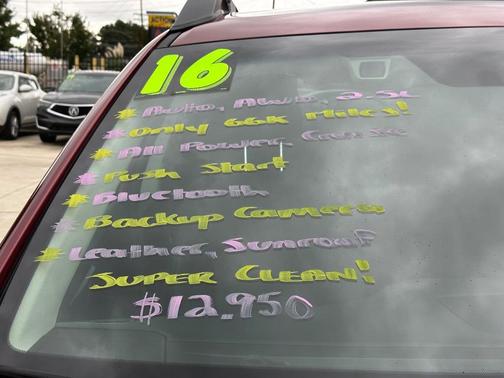 ACTION
16
* Auto, Awd, 2.5L
* Only 66K Miles!
* All Power, Cruise
* Push Start
* Bluetooth
* Backup Camera
* Leather, Sunroof
SUPER CLEAN!
$12,950